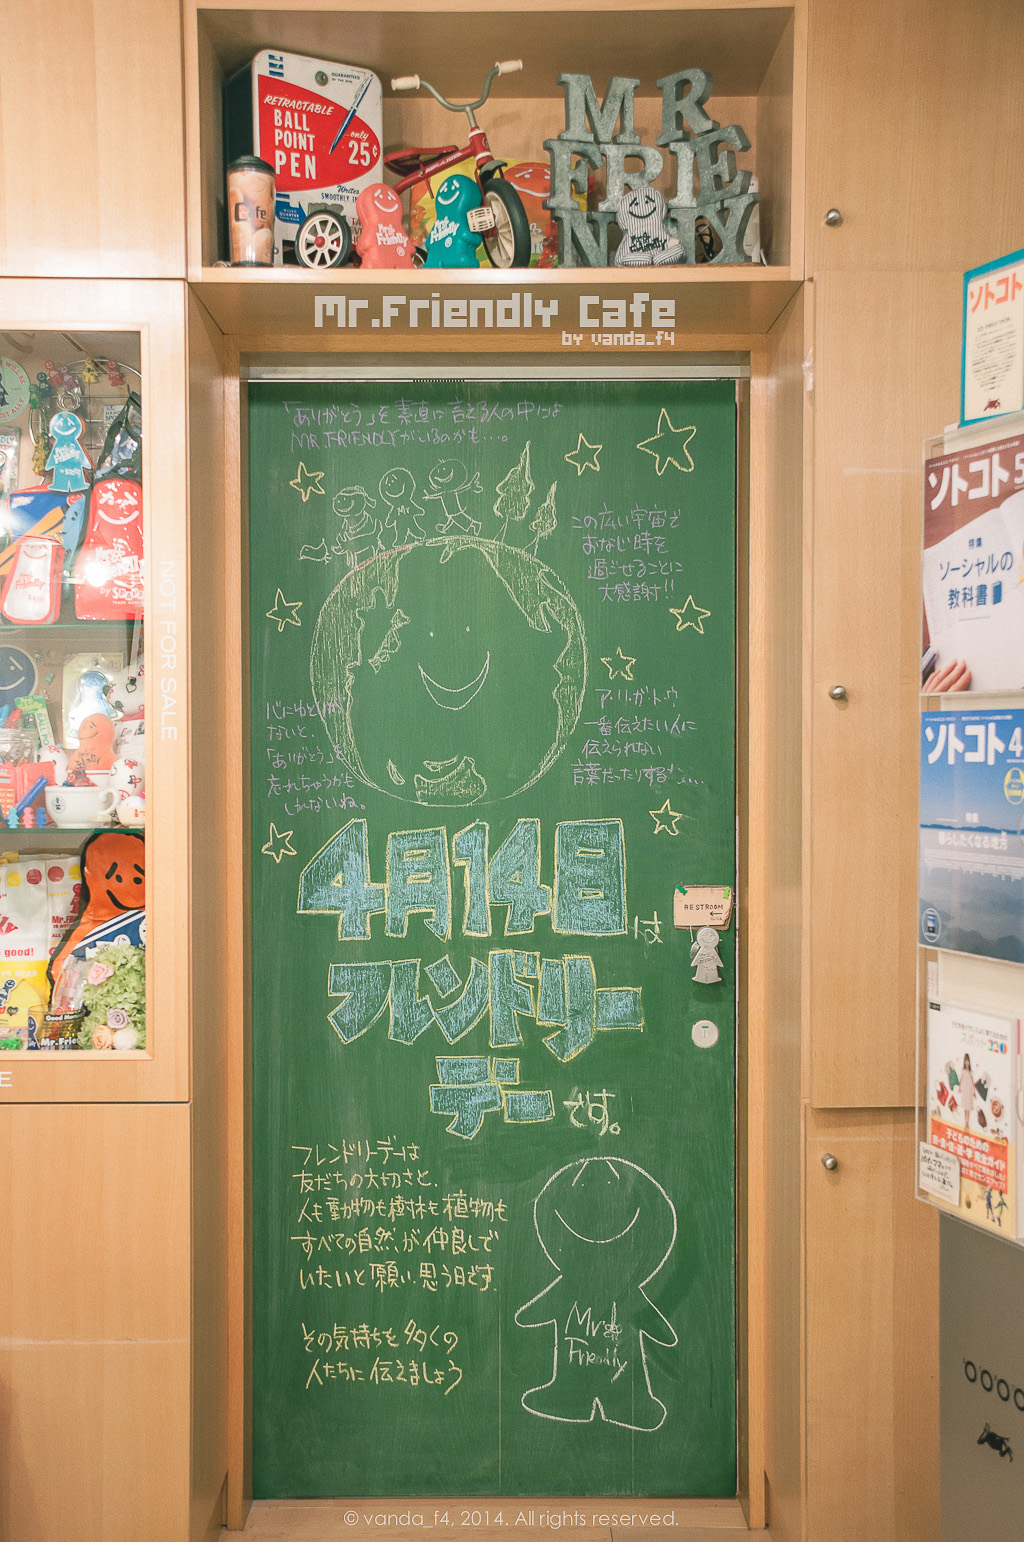 GUARANTEED
RETRACTABLE
BALL
POINT
PEN
only
25¢
Writes
SMOOTHLY
Cafe
Mr. Friendly
Mr. Friendly
MR
FRIE
NDLY
Mr.Friendly Cafe
by vanda_f4
「ありがとう」を素直に言える人の中には
MR.FRIENDLYがいるのかも...。
この広い宇宙で
おなじ時を
過ごせることに
大感謝!!
ア・リ・ガ・ト・ウ
一番伝えたい人に
伝えられない
言葉だったりする
心にゆとりが
ないと、
「ありがとう」を
忘れちゃうかも
しれないね。
4月14日は
フレンドリー
デーです。
RESTROOM
フレンドリーデーは
友だちの大切さと、
人も動物も樹林も植物も
すべての自然が仲良しで
いたいと願い、思う日です。
その気持ちを多くの
人たちに伝えましょう
Mr.
Friendly
NOT FOR SALE
ソトコト
ソトコト 5
特集
ソーシャルの
教科書
ソトコト 4
特集
暮らしたくなる地方
子どものための
© vanda_f4, 2014. All rights reserved.